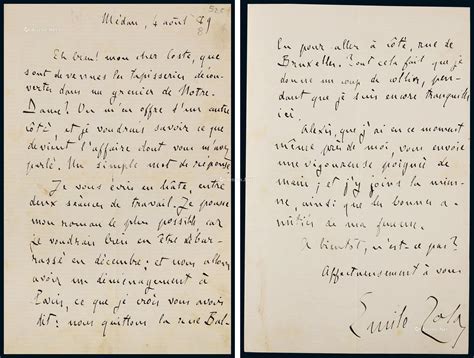 Médan, 4 août 89
Eh bien! mon cher Coste, que
sont devenues les tapisseries décou-
vertes dans un grenier de Notre-
Dame? On m'en offre d'un autre
côté, et je voudrais savoir ce que
devient l'affaire dont vous m'avez
parlé. Un simple mot de réponse
Je vous écris en hâte, entre
deux séances de travail. Je pousse
mon roman le plus possible, car
je voudrais bien en être débar-
rassé en décembre; et nous allons
avoir un déménagement à
Paris, ce que je crois vous avoir
dit: nous quittons la rue Bal-
lu pour aller à côté, rue de
Bruxelles. Tout cela fait que je
donne un coup de collier, pen-
dant que je suis encore tranquille
ici.
Alexis, que j'ai en ce moment
même près de moi, vous envoie
une vigoureuse poignée de
main; et j'y joins la mien-
ne, ainsi que les bonnes a-
mitiés de ma femme.
A bientôt, n'est-ce pas?
Affectueusement à vous
Emile Zola